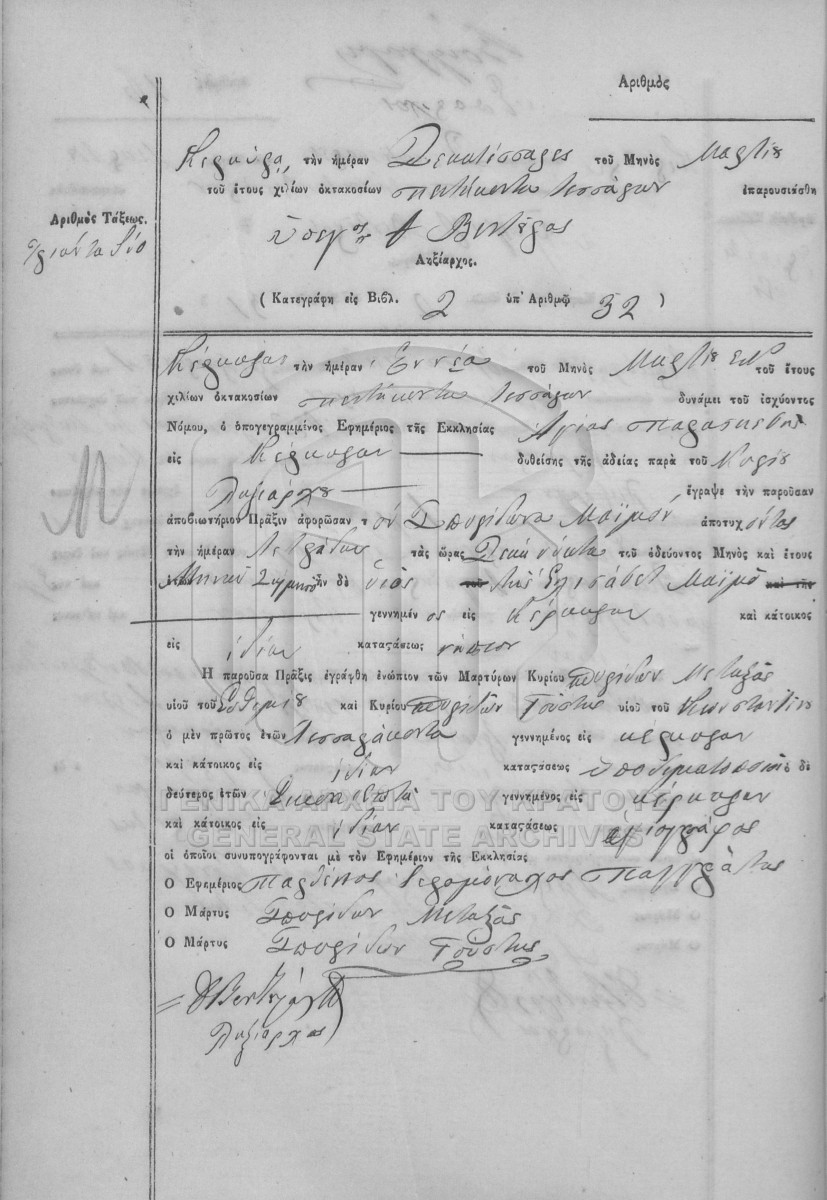 Ἀριθμὸς
Κέρκυρα, τὴν ἡμέραν Δεκατέσσαρες τοῦ Μηνὸς Μαρτίου
τοῦ ἔτους χιλίων ὀκτακοσίων πεντήκοντα τεσσάρων ἐπαρουσιάσθη
Ἀριθμὸς Τάξεως.
τριάντα δύο
Ληξίαρχος.
( Κατεγράφη εἰς Βιβλ. 2 ὑπ' Ἀριθμῷ 32 )
Κέρκυραν τὴν ἡμέραν Ἐννέα τοῦ Μηνὸς Μαρτίου τοῦ ἔτους
χιλίων ὀκτακοσίων πεντήκοντα τεσσάρων δυνάμει τοῦ ἰσχύοντος
Νόμου, ὁ ὑπογεγραμμένος Ἐφημέριος τῆς Ἐκκλησίας Ἁγίας Παρασκευῆς
εἰς Κέρκυραν δοθείσης τῆς ἀδείας παρὰ τοῦ Κυρίου
Ληξιάρχου ἔγραψε τὴν παροῦσαν
ἀποβιωτήριον Πρᾶξιν ἀφορῶσαν τὸν Σπυρίδωνα Μαϊμὸν ἀποτυχόντος
τὴν ἡμέραν τὰς ὥρας Δέκα τοῦ ὁδεύοντος Μηνὸς καὶ ἔτους
Μηνῶν 2 ἦν δὲ υἱὸς τοῦ τῆς Ἐλισάβετ Μαϊμὸ καὶ τῆς
γεννημένος εἰς Κέρκυραν καὶ κάτοικος
εἰς ἰδίαν καταςάσεως νήπιον
Ἡ παροῦσα Πρᾶξις ἐγράφθη ἐνώπιον τῶν Μαρτύρων Κυρίου Σπυρίδων Μεταξᾶς
υἱοῦ τοῦ Εὐθυμίου καὶ Κυρίου Σπυρίδων Γούστης υἱοῦ τοῦ Κωνσταντίνου
ὁ μὲν πρῶτος ἐτῶν τεσσαράκοντα γεννημένος εἰς κέρκυραν
καὶ κάτοικος εἰς ἰδίαν καταςάσεως ὑποδηματοποιὸς ὁ δὲ
δεύτερος ἐτῶν Εἴκοσι ἑπτὰ γεννημένος εἰς κέρκυραν
καὶ κάτοικος εἰς ἰδίαν καταςάσεως ἁγιογράφος
οἱ ὁποῖοι συνυπογράφονται μὲ τὸν Ἐφημέριον τῆς Ἐκκλησίας
Ὁ Ἐφημέριος Παρθένιος Ἱερομόναχος Παγκράτης
Ὁ Μάρτυς Σπυρίδων Μεταξᾶς
Ὁ Μάρτυς Σπυρίδων Γούστης
Ληξίαρχος
ΓΕΝΙΚΑ ΑΡΧΕΙΑ ΤΟΥ ΚΡΑΤΟΥΣ
GENERAL STATE ARCHIVES